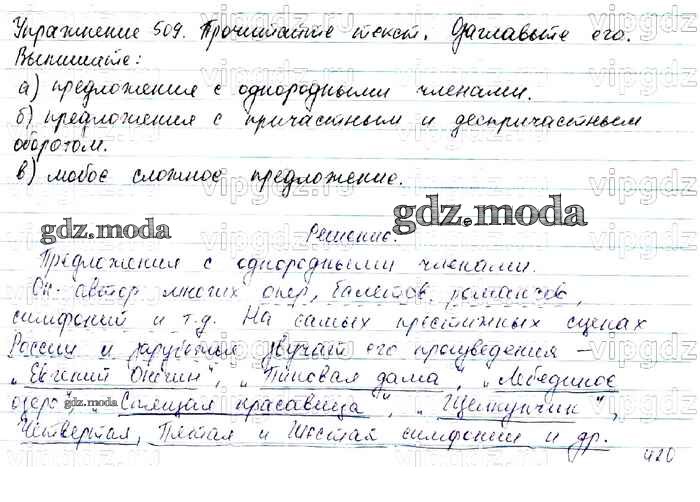 Упражнение 509. Прочитайте текст. Озаглавьте его.
Выпишите:
а) предложения с однородными членами.
б) предложения с причастным и деепричастным
оборотом.
в) любое сложное предложение.
gdz.moda
gdz.moda
Решение.
Предложения с однородными членами.
Он- автор многих опер, балетов, романсов,
симфоний и т.д. На самых престижных сценах
России и зарубежья звучат его произведения –
„Евгений Онегин", „Пиковая дама", „Лебединое
озеро gdz.moda „Спящая красавица", „Щелкунчик",
Четвертая, Пятая и Шестая симфонии и др.
420